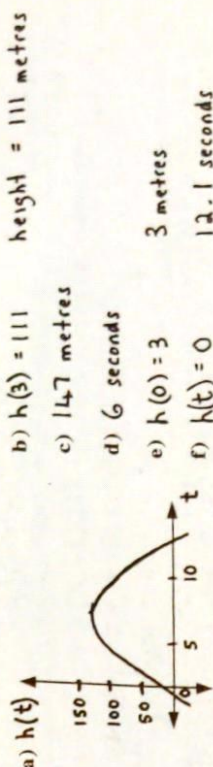 a) h(t)
150
100
50
0
5
10
t
b) h(3) = 111 height = 111 metres
c) 147 metres
d) 6 seconds
e) h(0) = 3 3 metres
f) h(t) = 0 12.1 seconds